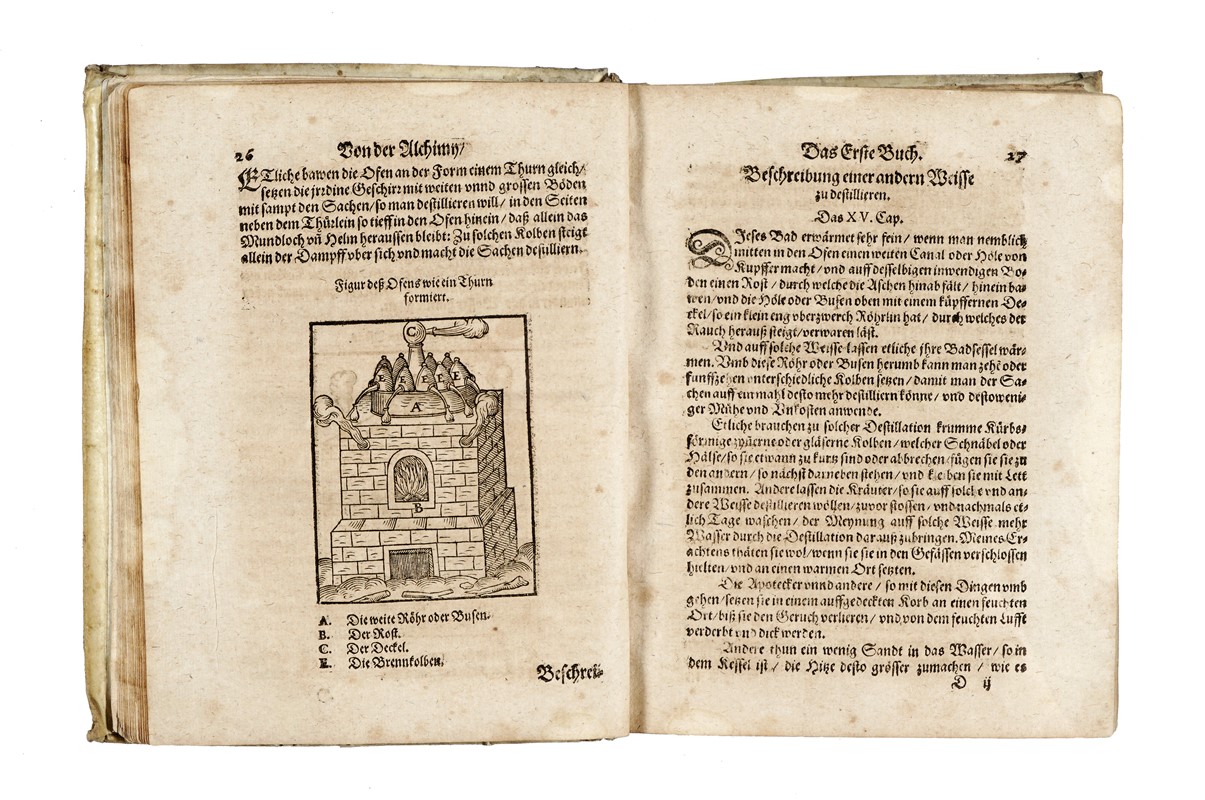 26
Von der Alchimy/
ETliche bawen die Ofen an der Form einem Thurn gleich/
setzen die jrrdine Geschirr mit weiten vnnd grossen Böden
mit sampt den Sachen/ so man destillieren will/ in den Seiten
neben dem Thürlein so tieff in den Ofen hinein/ daß allein das
Mundloch vñ Helm heraussen bleibt: Zu solchen Kolben steigt
allein der Dampff vber sich vnd macht die Sachen destilliern.
Figur deß Ofens wie ein Thurn
formiert.
C
E E E E E
A
B
A. Die weite Röhr oder Busen.
B. Der Rost.
C. Der Deckel.
E. Die Brennkolben.
Beschrei-
Das Erste Buch.
27
Beschreibung einer andern Weisse
zu destillieren.
Das XV. Cap.
DIeses Bad erwärmet sehr fein/ wenn man nemblich
mitten in den Ofen einen weiten Canal oder Höle von
Kupffer macht/ vnd auff desselbigen inwendigen Bo-
den einen Rost/ durch welche die Aschen hinab fält/ hinein ba-
wen/ vnd die Höle oder Busen oben mit einem küpffernen De-
ckel/ so ein klein eng vberzwerch Röhrlin hat/ durch welches der
Rauch herauß steigt/ verwaren läst.
Vnd auff solche Weisse lassen etliche jhre Badsessel wär-
men. Vmb diese Röhr oder Busen herumb kann man zehẽ oder
funffzehen vnterschiedliche Kolben setzen/ damit man der Sa-
chen auff ein mahl desto mehr destilliern könne/ vnd destoweni-
ger Mühe vnd Vnkosten anwende.
Etliche brauchen zu solcher Destillation krumme Kürbs-
förmige zyüerne oder gläserne Kolben/ welcher Schnäbel oder
Hälse/ so sie etwann zu kurtz sind oder abbrechen/ fügen sie sie zu
den andern/ so nächst darneben stehen/ vnd kleiben sie mit Lett
zusammen. Andere lassen die Kräuter/ so sie auff solche vnd an-
dere Weisse destillieren wöllen/ zuvor stossen/ vnd nachmals et-
lich Tage waschen/ der Meynung auff solche Weisse mehr
Wasser durch die Destillation darauß zubringen. Meines Er-
achtens thäten sie wol/ wenn sie sie in den Gefässen verschlossen
hielten/ vnd an einen warmen Ort setzten.
Die Apotecker vnnd andere/ so mit diesen Dingen vmb
gehen/ setzen sie in einem auffgedeckten Korb an einen feuchten
Ort/ biß sie den Geruch verlieren/ vnd von dem feuchten Lufft
verderbt vnd dick werden.
Andere thun ein wenig Sandt in das Wasser/ so in
dem Kessel ist/ die Hitze desto grösser zumachen/ wie es
D ij